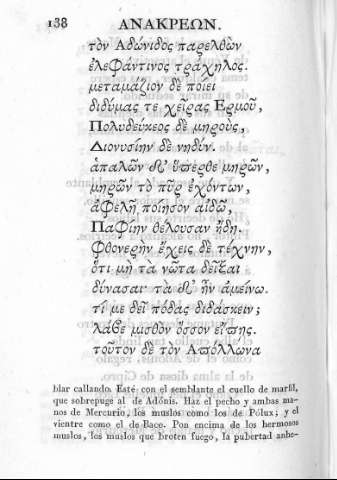 138 ΑΝΑΚΡΕΩΝ.
τὸν Ἀδώνιδος παρελθὼν
ἐλεφάντινος τράχηλος.
μεταμάζιον δὲ ποίει
διδύμας τε χεῖρας Ερμοῦ,
Πολυδεύκεος δὲ μηροὺς,
Διονυσίην δὲ νηδύν.
ἁπαλῶν δ' ὕπερθε μηρῶν,
μηρῶν τὸ πῦρ ἐχόντων,
ἀφελῆ ποίησον αἰδῶ,
Παφίην θέλουσαν ἤδη.
Φθονερὴν ἔχεις δὲ τέχνην,
ὅτι μὴ τὰ νῶτα δεῖξαι
δύνασαι· τὰ δ' ἦν ἀμείνω.
τί με δεῖ πόδας διδάσκειν;
λάβε μισθὸν ὅσσον εἴπῃς.
τοῦτον δὲ τὸν Απόλλωνα
blar callando. Esté con el semblante el cuello de marfil,
que sobrepuge al de Adónis. Haz el pecho y ambas ma-
nos de Mercurio, los muslos como los de Pólux; y el
vientre como el de Baco. Pon encima de los hermosos
muslos, los muslos que broten fuego, la pubertad anhe-